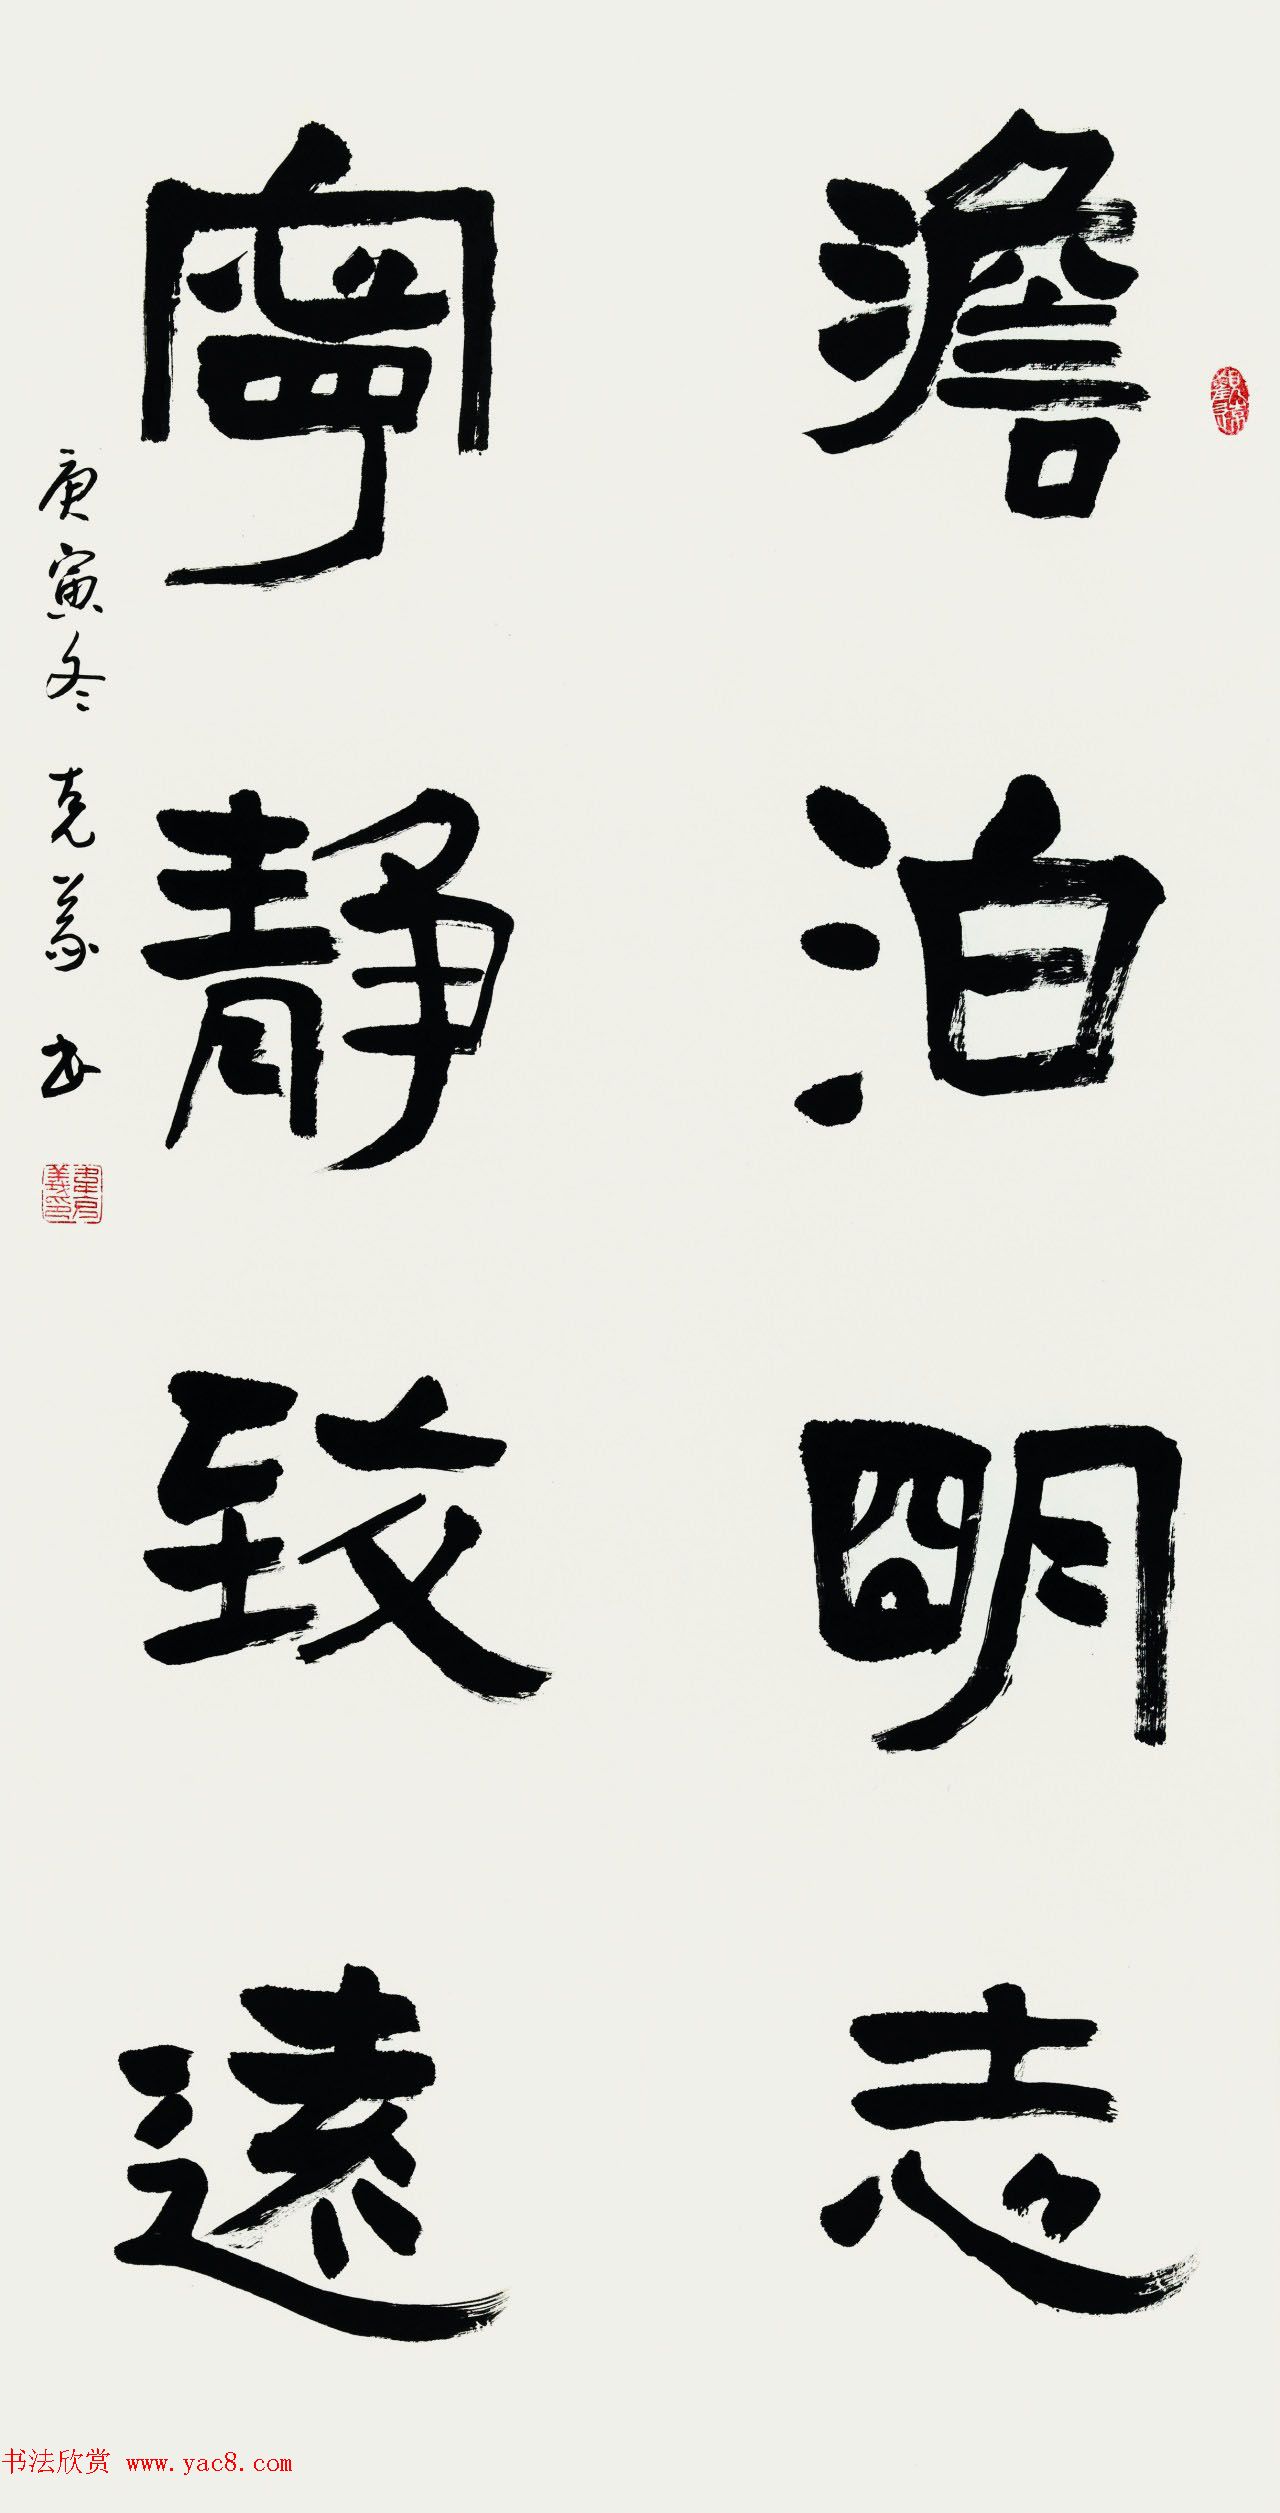 澹泊明志
寧靜致遠
庚寅冬 克義 书
书法欣赏 www.yac8.com